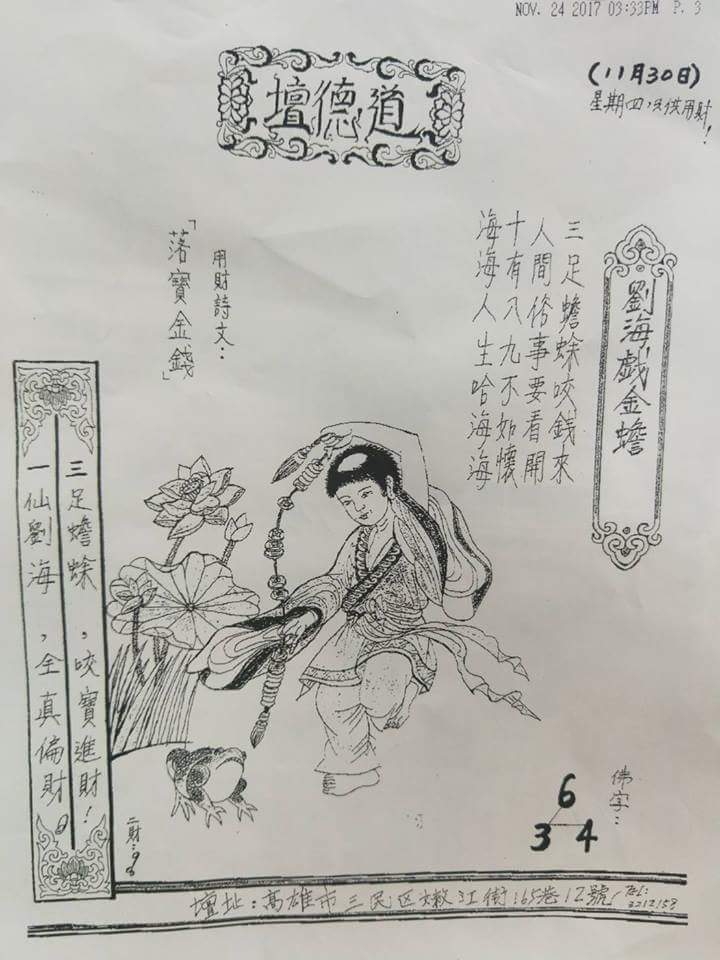 NOV. 24 2017 03:33PM P. 3
(11月30日)
星期四,只供用財!
道德壇
劉海戲金蟾
三足蟾蜍咬錢來
人間俗事要看開
十有八九不如懷
海海人生哈海海
用財詩文:
「落寶金錢」
三足蟾蜍,咬寶進財!
一仙劉海,全真偏財。
二財:96
佛字:
6
3 4
壇址:高雄市三民区嫩江街165巷12號
TEL:
3212158